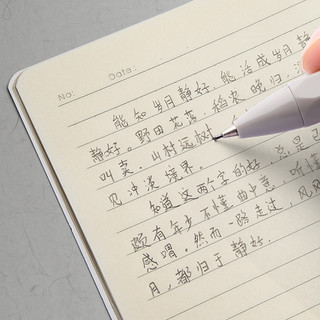 No:  Date:
能知岁月静好，能活成岁月静
静好。野田花落，徐农晚归，
叫卖，山村远树
见冲淡境界。
知道这两个字的好，总是
颇有年少不懂曲中意，听懂
感喟。然而一路走过，风风
月，都归于静好.